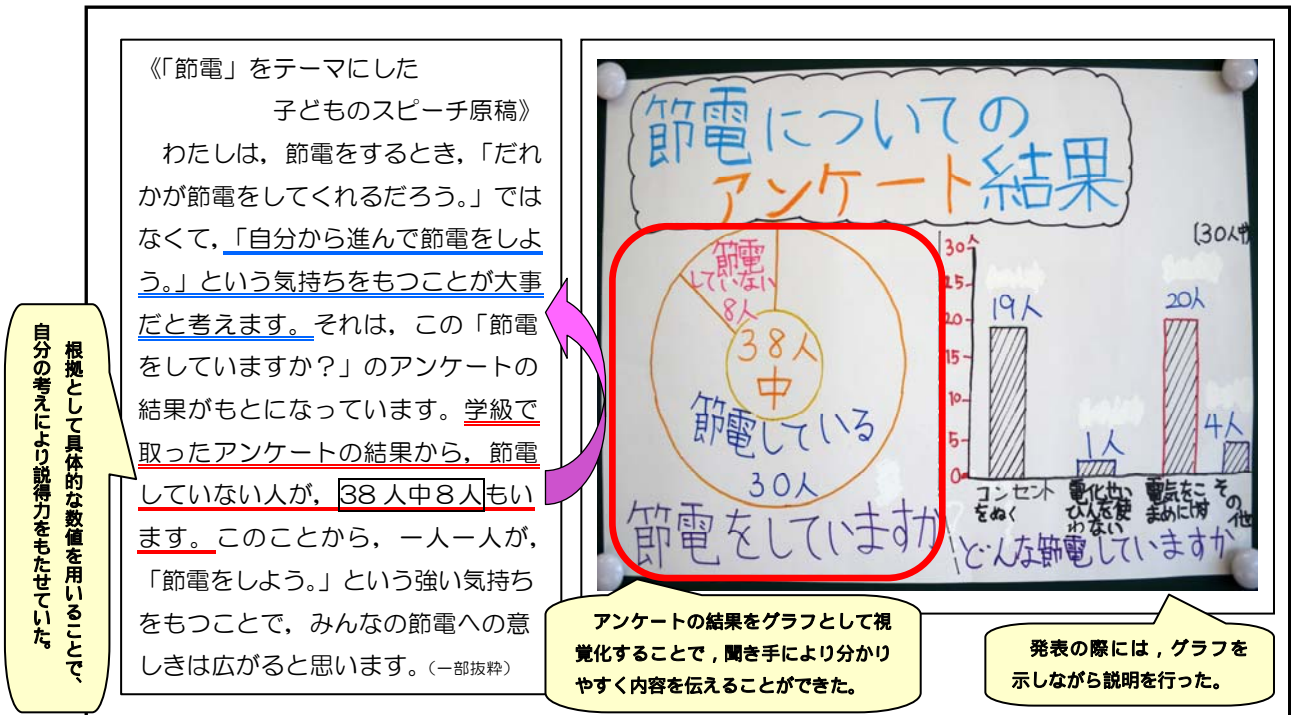 《「節電」をテーマにした
子どものスピーチ原稿》
わたしは，節電をするとき，「だれ
かが節電をしてくれるだろう。」では
なくて，「自分から進んで節電をしよ
う。」という気持ちをもつことが大事
だと考えます。それは，この「節電
をしていますか？」のアンケートの
結果がもとになっています。学級で
取ったアンケートの結果から，節電
していない人が，38人中8人もい
ます。このことから，一人一人が，
「節電をしよう。」という強い気持ち
をもつことで，みんなの節電への意
しきは広がると思います。（一部抜粋）
根拠として具体的な数値を用いることで、
自分の考えにより説得力をもたせていた。
節電についての
アンケート結果
節電
していない
8人
38人
中
節電している
30人
節電をしていますか
(30人中
30人
25
20
15
10
5
0
19人
1人
20人
4人
コンセント
をぬく
電化せい
ひんを使
わない
電気をこ
まめにけす
その他
どんな節電していますか
アンケートの結果をグラフとして視
覚化することで，聞き手により分かり
やすく内容を伝えることができた。
発表の際には，グラフを
示しながら説明を行った。